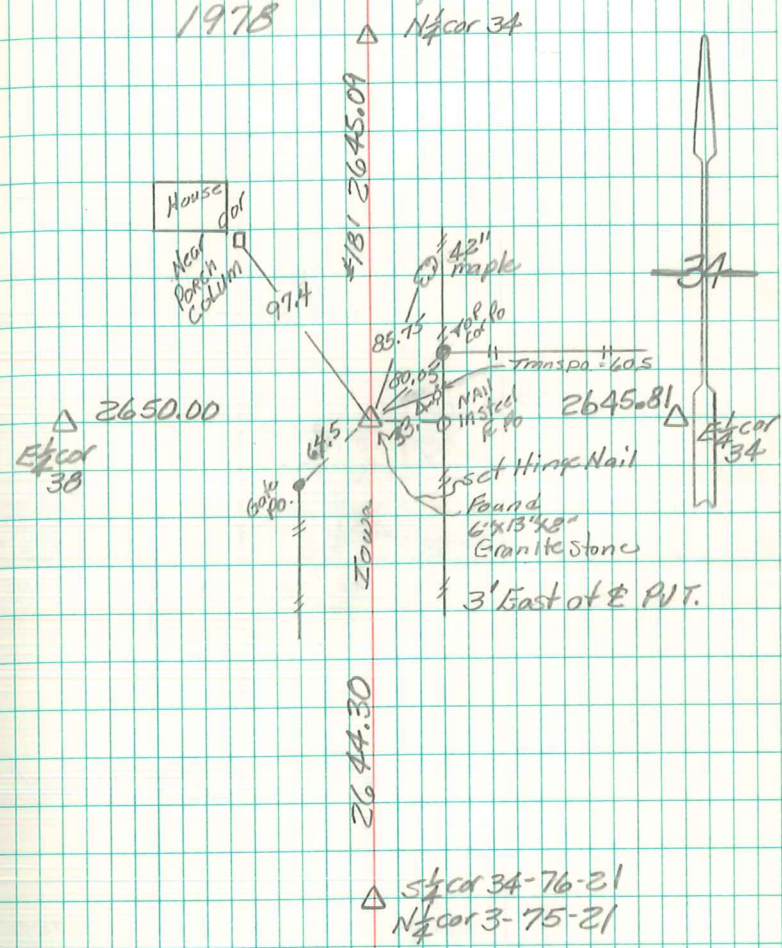 1978
N 1/4 cor 34
2645.09
#181
House
cor
Near
PORCH
COLUMN
97.4
42"
maple
85.75
Top
cor Po
80.05
Trans po. = 60.5
NAIL
IN Steel
Po
34
2650.00
E 1/4 cor
38
2645.81
E 1/4 cor
34
64.5
Gate
po.
set Hinge Nail
Found
6"x13"x8"
Granite Stone
Iowa
3' East of ℄ PVT.
2644.30
S 1/4 cor 34-76-21
N 1/4 cor 3-75-21